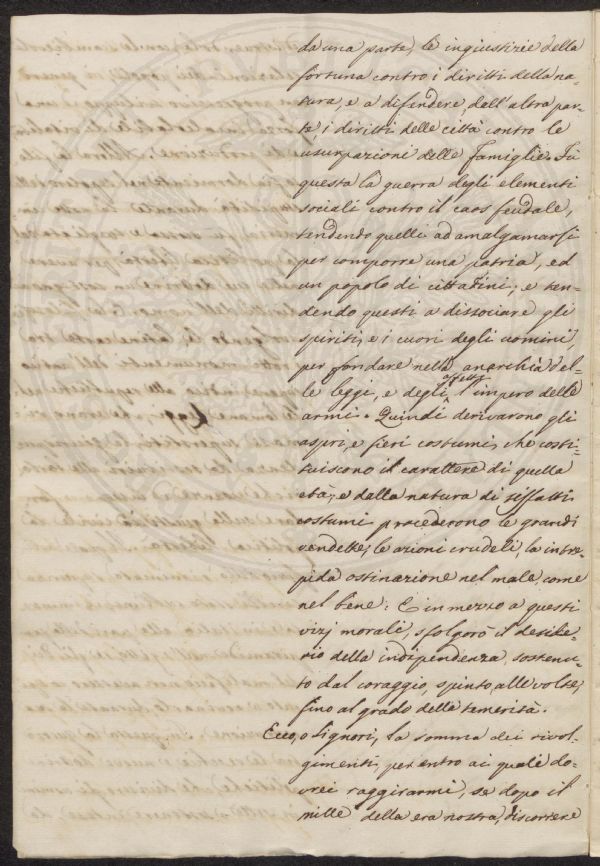 da una parte, le ingiustizie della
fortuna contro i diritti della na-
tura, e a difendere, dall'altra par-
te, i diritti delle città contro le
usurpazioni delle famiglie. Fu
questa la guerra degli elementi
sociali contro il caos feudale,
tendendo quelli ad amalgamarsi
per comporre una patria, ed
un popolo di cittadini; e ten-
dendo questi a dissociare gli
spiriti, e i cuori degli uomini,
per fondare nella anarchia del-
le leggi, e degli affetti l'impero delle
armi. Quindi derivarono gli
aspri, e fieri costumi, che costi-
tuiscono il carattere di quella
età; e dalla natura di siffatti
costumi procederono le grandi
vendette, le azioni crudeli, la intre-
pida ostinazione nel male, come
nel bene: E in mezzo a questi
vizj morali, sfolgorò il deside-
rio della indipendenza, sostenu-
to dal coraggio, spinto, alle volte,
fino al grado della temerità.
Ecco, o Signori, la somma dei rivol-
gimenti, per entro ai quali do-
vrei raggirarmi, se dopo il
mille della era nostra, discorrere